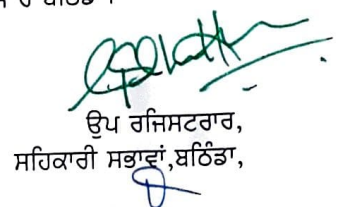 ਉਪ ਰਜਿਸਟਰਾਰ,
ਸਹਿਕਾਰੀ ਸਭਾਵਾਂ,ਬਠਿੰਡਾ,